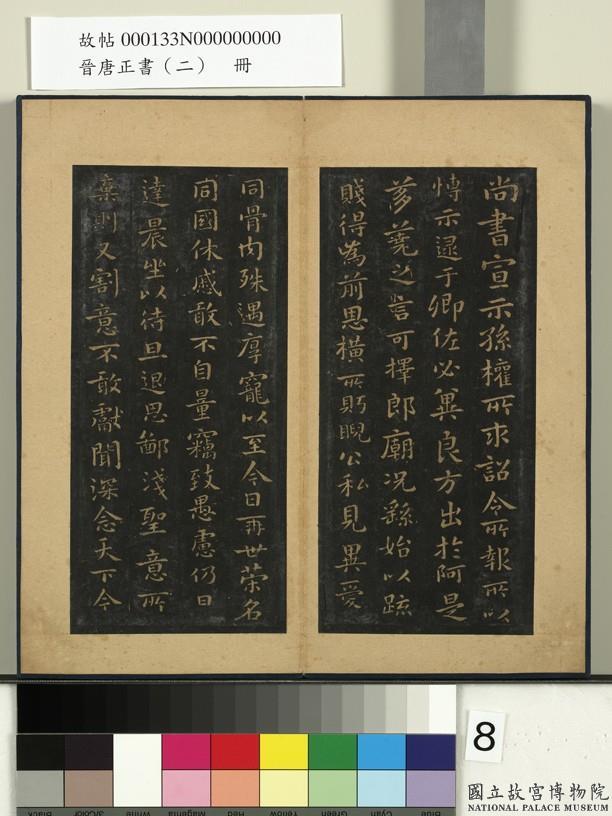 故帖 000133N000000000
晉唐正書（二） 冊
尚書宣示孫權所求詔令所報所以
博示逮于卿佐必冀良方出於阿是
芻蕘之言可擇郎廟況繇始以疏
賤得為前恩橫所眄睨公私見異愛
同骨肉殊遇厚寵以至今日再世榮名
同國休慼敢不自量竊致愚慮仍日
達晨坐以待旦退思鄙淺聖意所
棄則又割意不敢獻聞深念天下今
8
Black
3/Color
White
Magenta
Red
Yellow
Green
Cyan
Blue
國立故宮博物院
NATIONAL PALACE MUSEUM